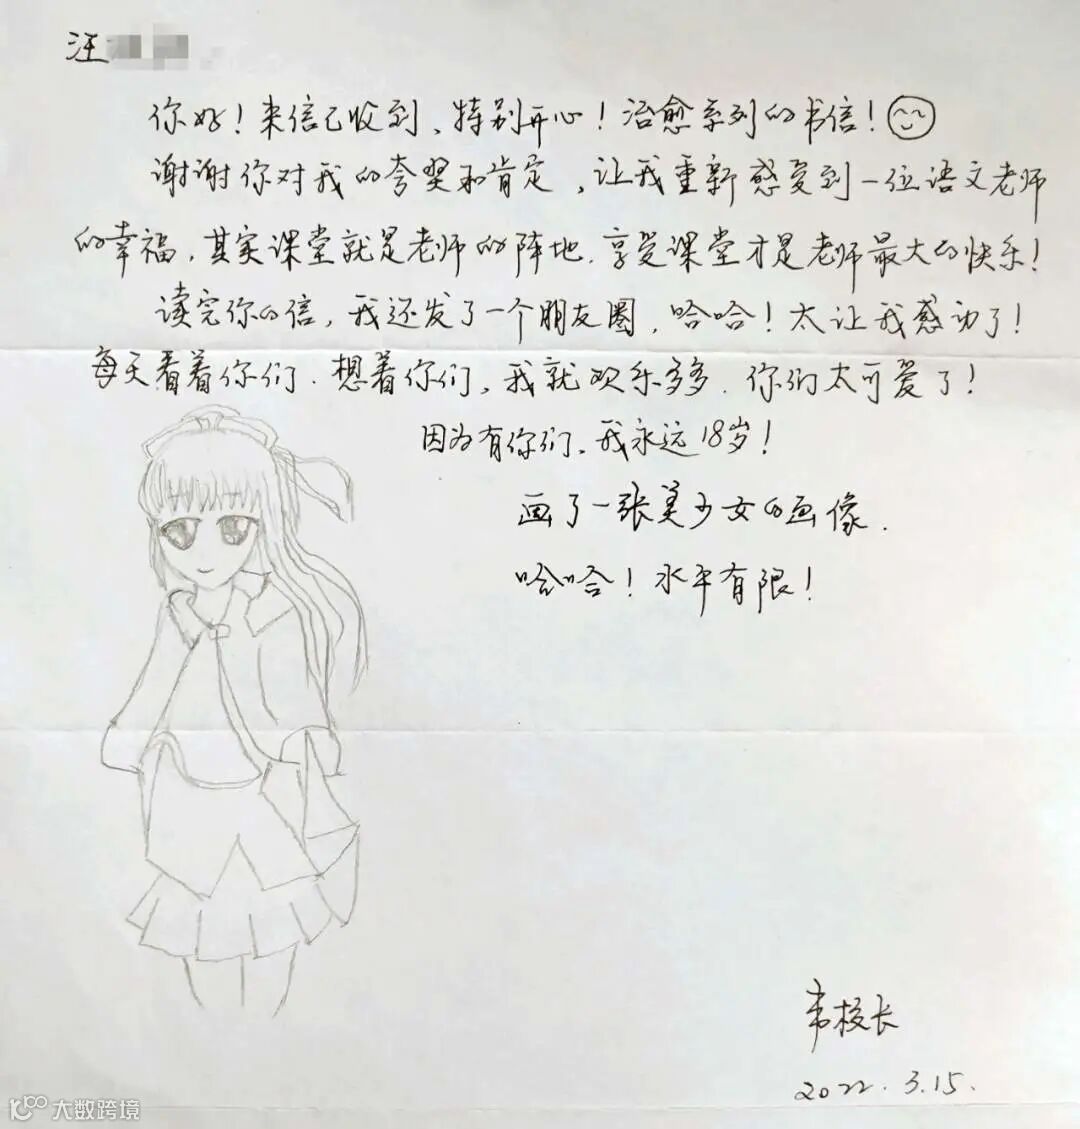 汪
你好！来信已收到、特别开心！治愈系列的书信！
谢谢你对我的夸奖和肯定，让我重新感受到一位语文老师
的幸福，其实课堂就是老师的阵地.享受课堂才是老师最大的快乐！
读完你的信，我还发了一个朋友圈，哈哈！太让我感动了！
每天看着你们.想着你们，我就欢乐多多.你们太可爱了！
因为有你们，我永远18岁！
画了一张美少女的画像.
哈哈！水平有限！
韦校长
2022.3.15.
大数跨境